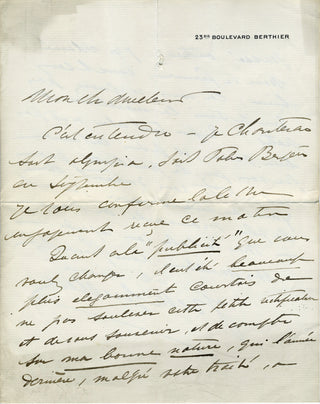 23BIS BOULEVARD BERTHIER
Mon ch directeur
C'est entendu – je chanterai
soit olympia, soit Folies Bergère
en septembre
je vous confirme la lettre
engagement reçue ce matin
Quant à la "publicité" que vous
voulez changer, il eut été beaucoup
plus elegamment courtois de
ne pas soulever cette petite
et de vous souvenir, et de compter
sur ma bonne nature, qui l'année
dernière, malgré votre traité, a